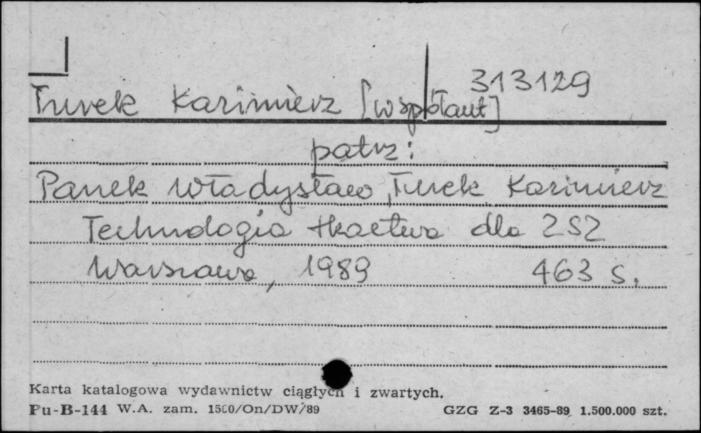 313129
Turek Kazimierz [współaut]
patrz:
Panek Władysław, Turek Kazimierz
Technologia tkactwa dla ZSZ
Warszawa, 1989 463 s.
Karta katalogowa wydawnictw ciągłych i zwartych.
Pu-B-144 W.A. zam. 1500/On/DW/89 GZG Z-3 3465-89 1.500.000 szt.